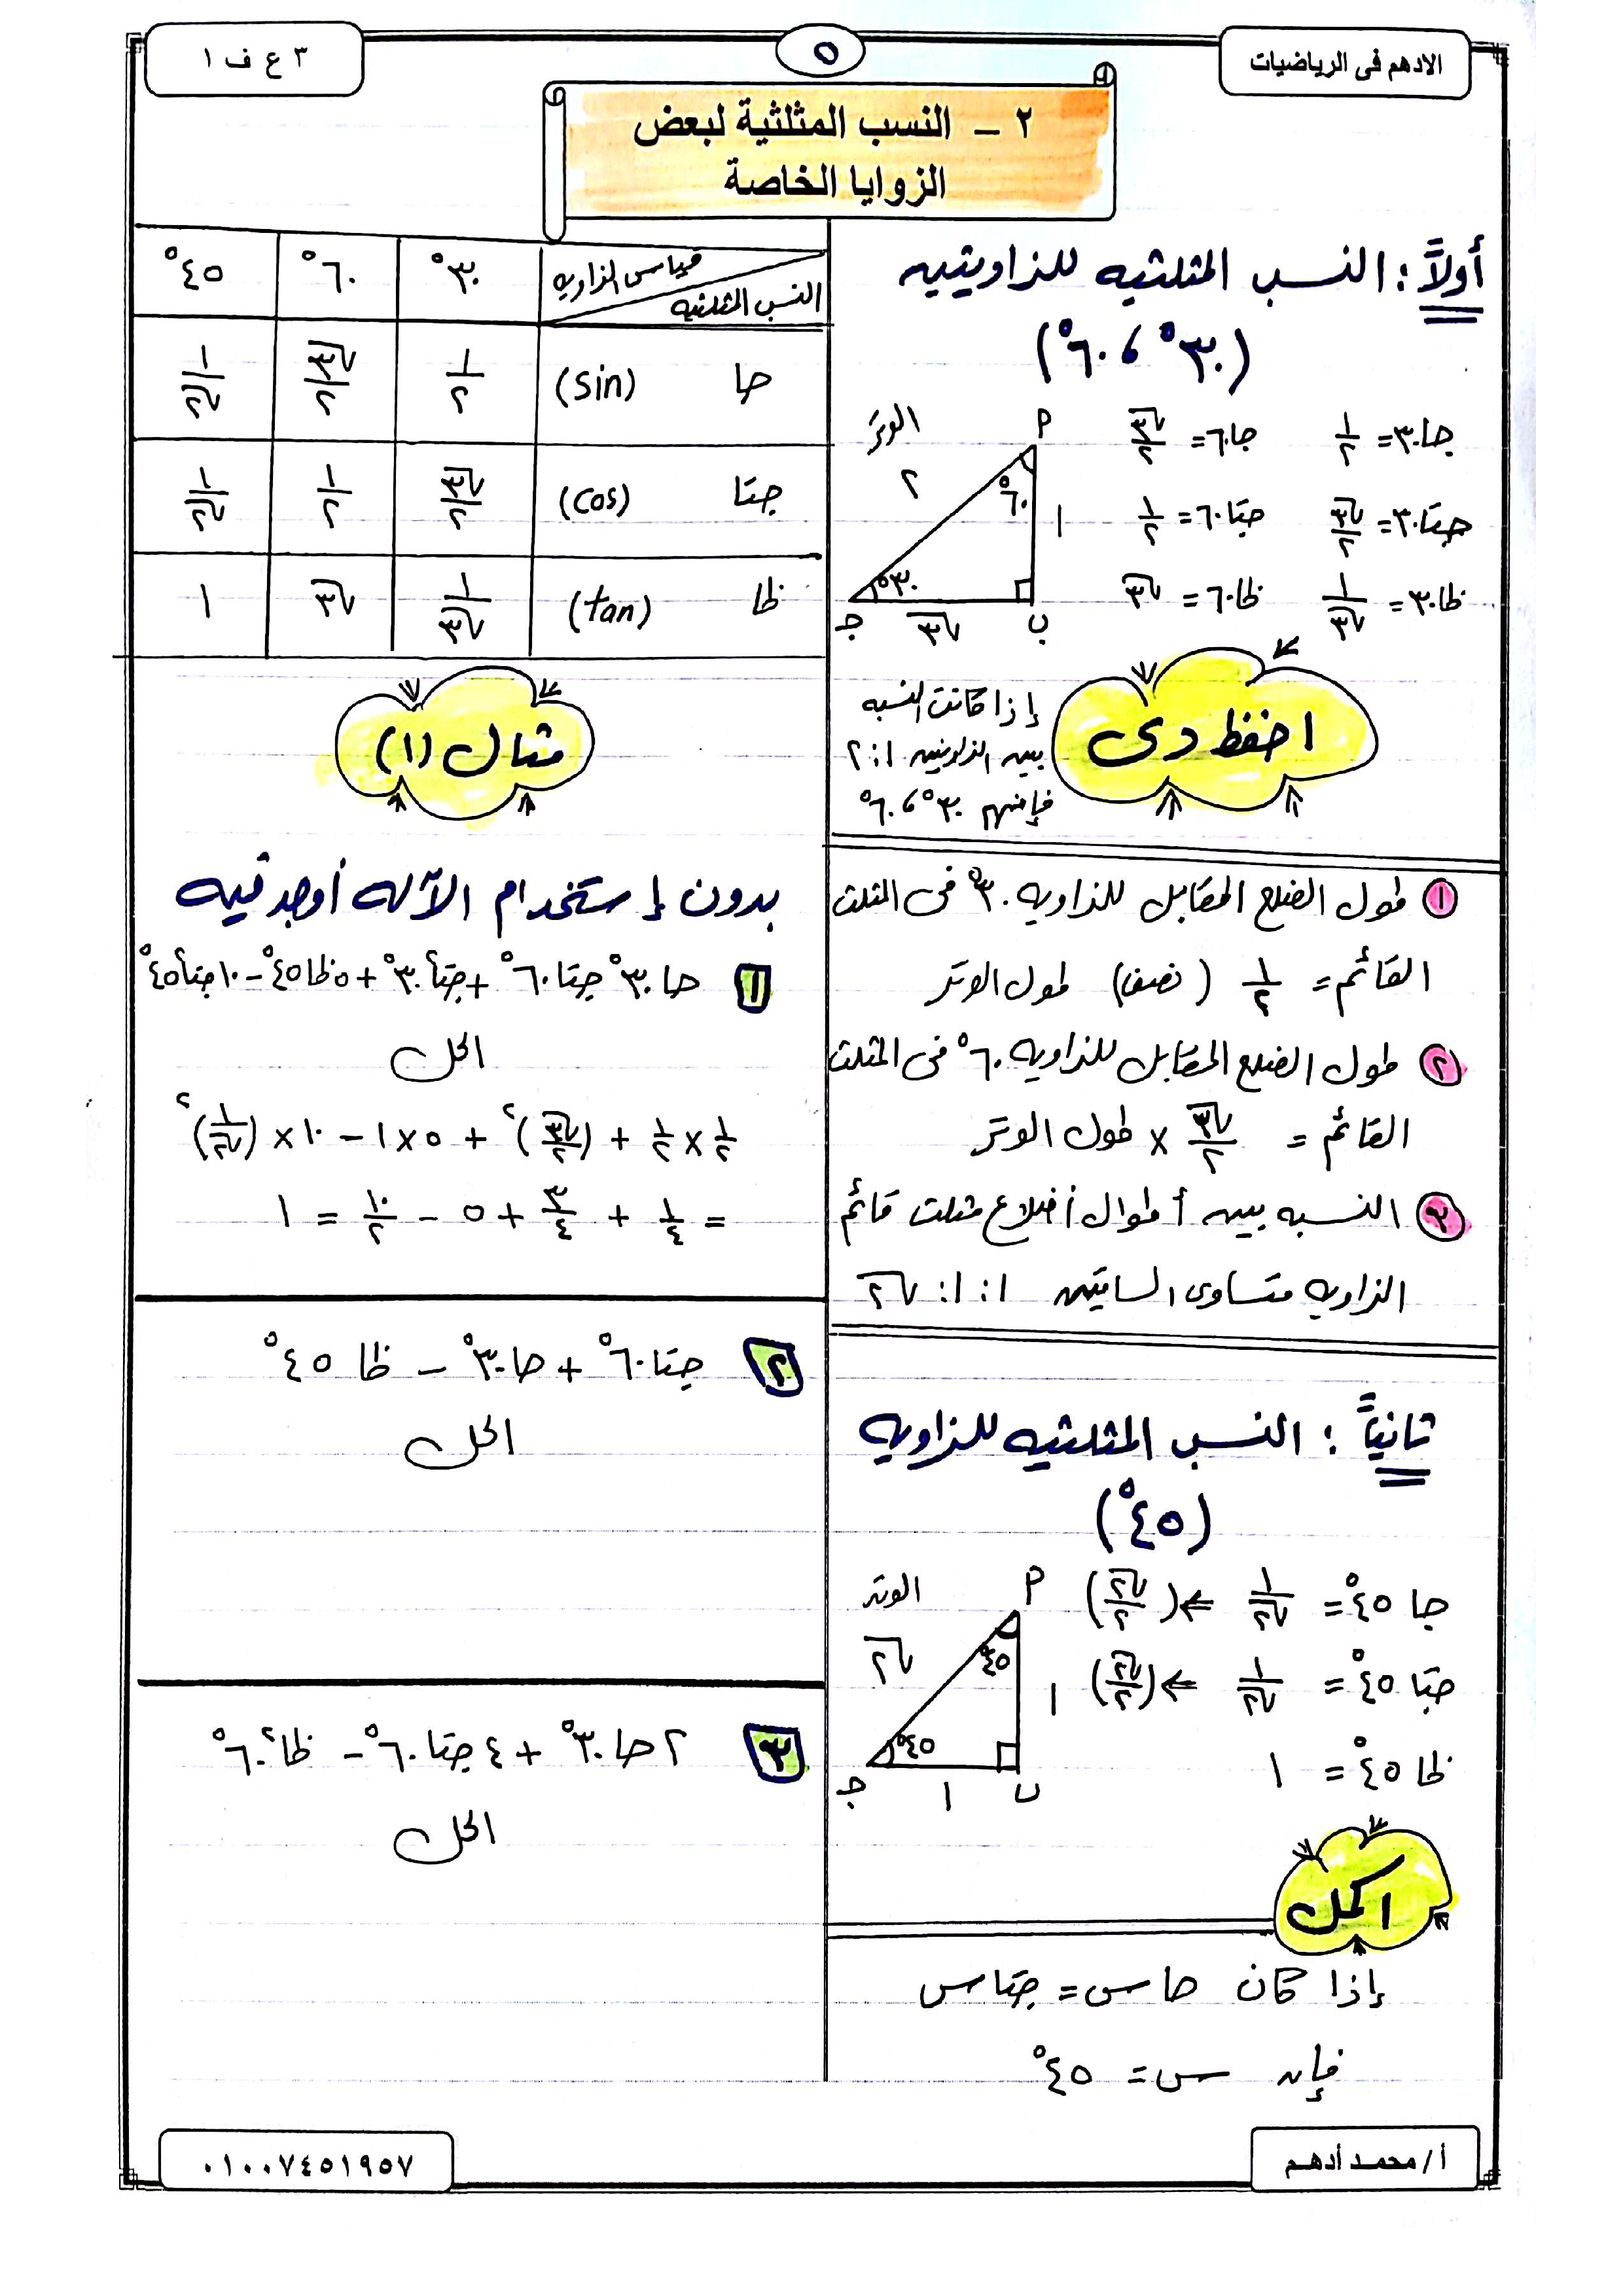 الادهم فى الرياضيات
٥
٣ ع ف ١
٢ – النسب المثلثية لبعض
الزوايا الخاصة
أولاً : النسب المثلثيه للزاويتيه
(٣٠° ، ٦٠°)
حا٣٠ = ١/٢ جا٦٠ = √٣/٢
جتا٣٠ = √٣/٢ جتا٦٠ = ١/٢
ظا٣٠ = ١/√٣ ظا٦٠ = √٣
الوتر
٢
٦٠°
١
٣٠°
√٣
ب
جـ
احفظ دى
إذا كانت النسبه
بيه الزاويتيه ١ : ٢
فإنهم ٣٠° ، ٦٠°
١ طول الضلع المقابل للزاويه ٣٠° فى المثلث
القائم = ١/٢ (نصف) طول الوتر
٢ طول الضلع المقابل للزاويه ٦٠° فى المثلث
القائم = √٣/٢ × طول الوتر
٣ النسبه بيه أطوال أضلاع مثلث قائم
الزاويه متساوى الساقيه ١ : ١ : √٢
ثانياً : النسب المثلثيه للزاويه
(٤٥°)
جا ٤٥° = ١/√٢ ⇐ (√٢/٢)
جتا ٤٥° = ١/√٢ ⇐ (√٢/٢)
ظا ٤٥° = ١
الوتر
√٢
٤٥
١
٤٥°
١
ب
جـ
اكمل
إذا كان حا س = جتا س
فإنه س = ٤٥°
قياس الزاويه
النسب المثلثيه
٣٠° ٦٠° ٤٥°
حا (sin) ١/٢ √٣/٢ ١/√٢
جتا (cos) √٣/٢ ١/٢ ١/√٢
ظا (tan) ١/√٣ √٣ ١
مثال (١)
بدون إستخدام الآله أوجد قيه
١ حا٣٠° جتا٦٠° + جتا²٣٠° + ٥ظا٤٥° – ١٠جتا²٤٥°
الحل
١/٢ × ١/٢ + (√٣/٢)² + ٥ × ١ – ١٠ × (١/√٢)²
= ١/٤ + ٣/٤ + ٥ – ١٠/٢ = ١
٢ جتا٦٠° + حا٣٠° – ظا ٤٥°
الحل
٣ ٢حا٣٠° + ٤جتا٦٠° – ظا²٦٠°
الحل
أ / محمد أدهم
٠١٠٠٧٤٥١٩٥٧